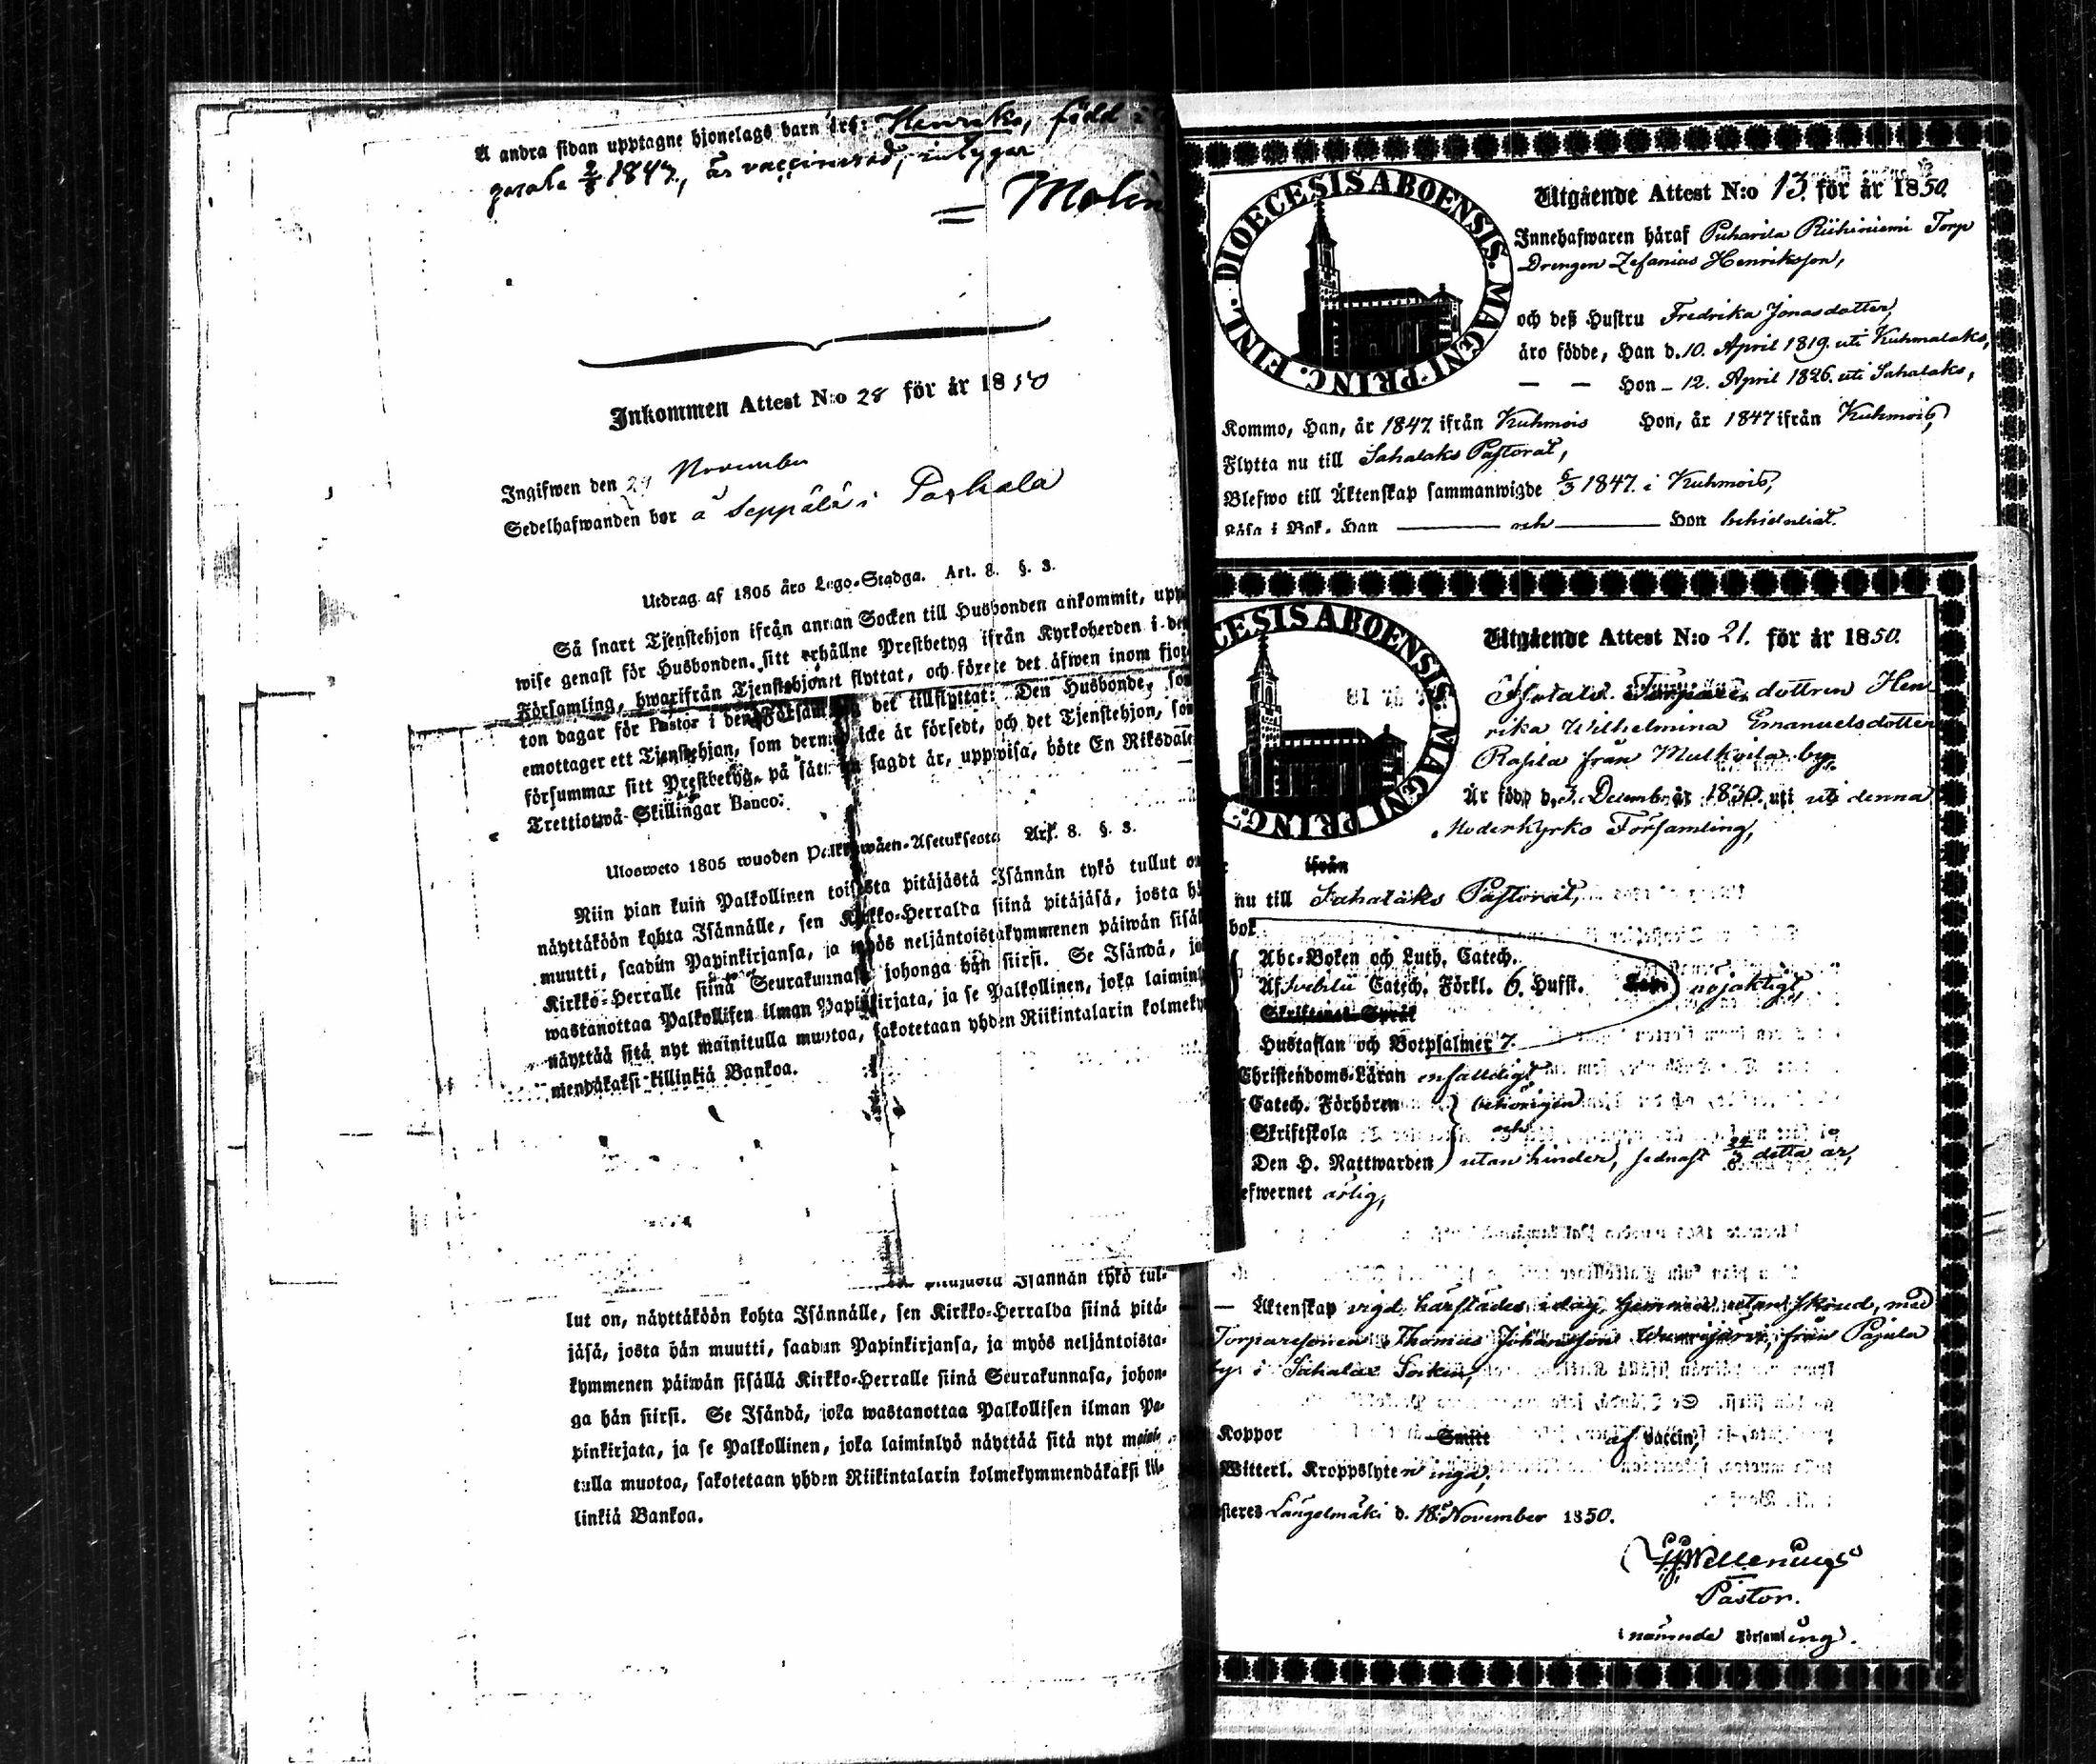 Å andra sidan upptagne hjonelags barn är: Henriks, född i
2/8 1847, är vaccinerad, intygar
Molin
Inkommen Attest N:o 28 för år 1850
Ingifwen den 29 November
Sedelhafwanden bor å Seppälä i
Utdrag af 1805 års Lego-Stadga. Art. 8. §. 3.
Så snart Tjenstehjon ifrån annan Socken till Husbonden ankommit, upp
wise genast för Husbonden, sitt erhållne Prestbetyg ifrån Kyrkoherden i den
Församling, hwarifrån Tjenstehjonet flyttat, och förete det äfwen inom fjor
ton dagar för Pastor i den Församling det tillflyttat: Den Husbonde, som
emottager ett Tjenstehjon, som dermed icke är försedt, och det Tjenstehjon, som
försummar sitt Prestbetyg, på sätt nu sagdt är, uppwisa, böte En Riksdaler
Trettiotwå Skillingar Banco.
Ulosweto 1805 wuoden Palkkawäen-Asetuksesta Art. 8. §. 3.
Niin pian kuin Palkollinen toisesta pitäjästä Isännän tykö tullut on
näyttäköön kohta Isännälle, sen Kirkko-Herralda siinä pitäjäsä, josta hän
muutti, saadun Papinkirjansa, ja myös neljäntoistakymmenen päiwän sisäl
Kirkko-Herralle siinä Seurakunnasa johonga hän siirsi. Se Isändä, jo
wastanottaa Palkollisen ilman Papinkirjata, ja se Palkollinen, joka laiminl
näyttää sitä nyt mainitulla muotoa, sakotetaan yhden Riikintalarin kolmeky
mendäkaksi killinkiä Bankoa.
pitäjästä Isännän tykö tul-
lut on, näyttäköön kohta Isännälle, sen Kirkko-Herralda siinä pitä-
jäsä, josta hän muutti, saadun Papinkirjansa, ja myös neljäntoista-
kymmenen päiwän sisällä Kirkko-Herralle siinä Seurakunnasa, johon-
ga hän siirsi. Se Isändä, joka wastanottaa Palkollisen ilman Pa-
pinkirjata, ja se Palkollinen, joka laiminlyö näyttää sitä nyt maini-
tulla muotoa, sakotetaan yhden Riikintalarin kolmekymmendäkaksi kil-
linkiä Bankoa.
DIOECESIS ABOENSIS. MAGNI PRINC. FINL.
Utgående Attest N:o 13. för år 1850.
Innehafwaren häraf Puharila Riihiniemi Torp
Drengen Zefanias Henriksson,
och deß Hustru Fredrika Jonasdotter,
äro födde, Han d. 10. April 1819. uti Kuhmalaks,
— — Hon – 12. April 1826. uti Sahalaks,
Kommo, Han, år 1847. ifrån Kuhmois Hon, år 1847 ifrån Kuhmois,
Flytta nu till Sahalaks Pastorat,
Blefwo till Äktenskap sammanwigde 5/3 1847. i Kuhmois,
Läsa i Bok, Han — och — Hon
CESIS ABOENSIS. MAGNI PRINC.
Utgående Attest N:o 21. för år 1850.
dottren Hen
rika Wilhelmina Emanuelsdotter
Rasila från Mulkoila by,
Är född d. 3. Decemb. år 1830. uti denna
Moderkyrko Församling,
ifrån
nu till Sahalaks Pastorat,
bok
Abc-Boken och Luth. Catech.
Af Svebilii Catech. Förkl. 6. Hufst. nöjaktigt,
Skriftenes Språk
Hustaflan och Botpsalmer 7.
Christendoms-Läran enfaldigt
Catech. Förhören behörigen
Skriftskola och
Den H. Nattwarden utan hinder, sednast 29/9 detta år,
efwernet ärlig,
— Äktenskap vigd härstädes i dag, hemma utan skrud, med
Torparesonen Thomas Johansson från Pajula
by i Sahalax Socken,
Koppor Smitt af Vaccin,
Witterl. Kroppslyten inga,
steres Längelmäki d. 18 November 1850.
Pastor.
i nämnde Församling.